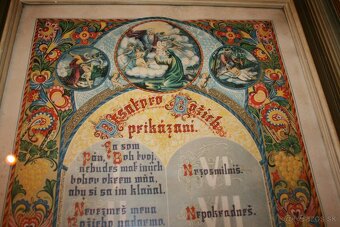 Desatoro Božích
prikázaní.
Ja som
Pán, Boh tvoj,
nebudeš mať iných
bohov okrem mňa,
aby si sa im klaňal.
Nevezmeš mena
Božieho nadarmo.
VI
Nezosmilníš.
VII
Nepokradneš.